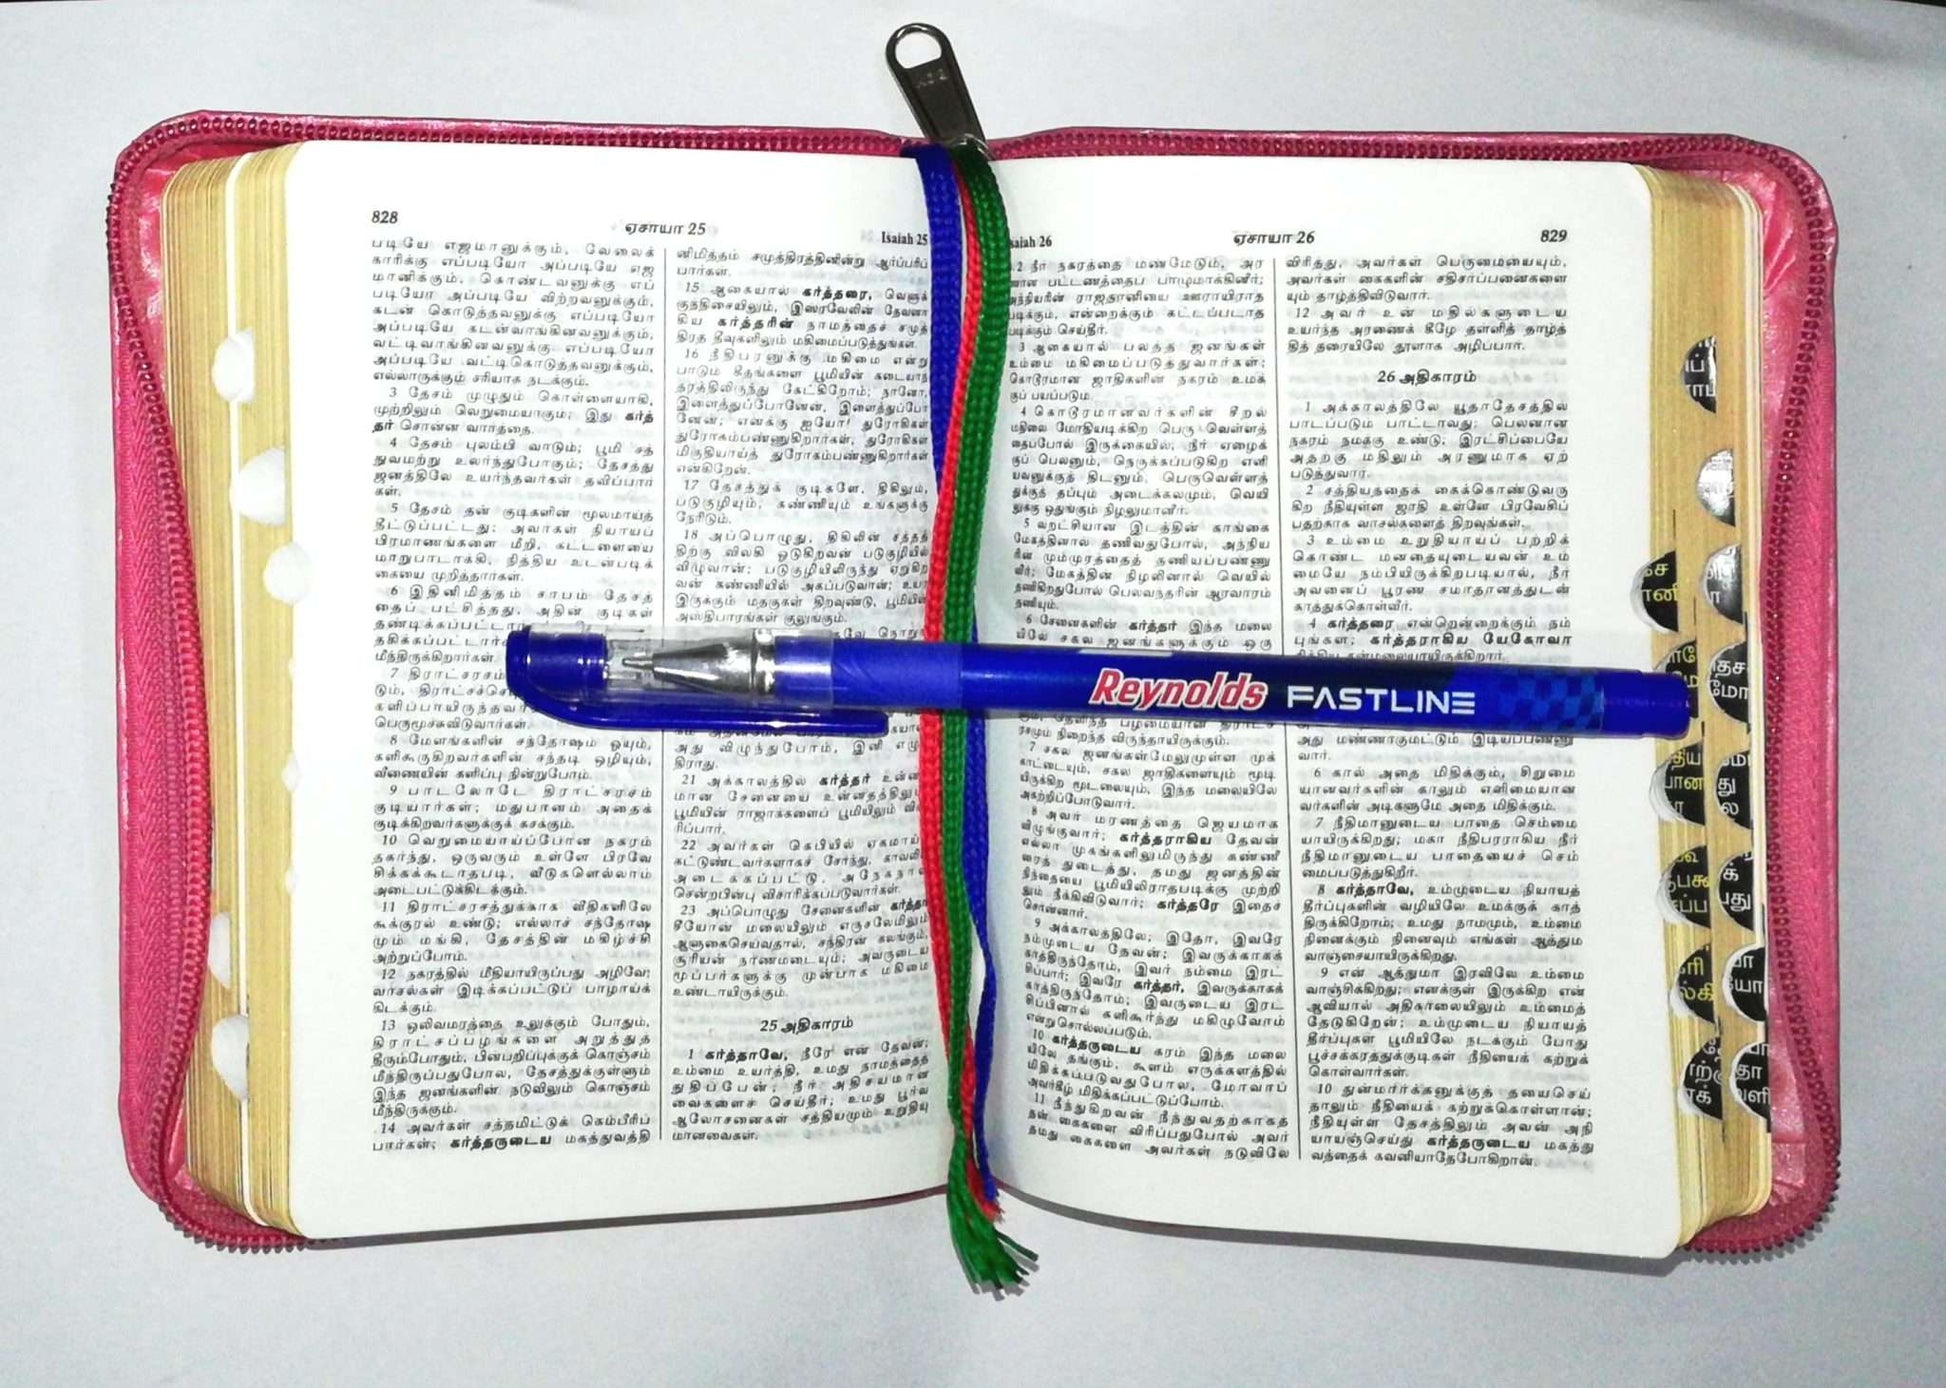 828
ஏசாயா 25
Isaiah 25
படியே எஜமானுக்கும், வேலைக்
காரிக்கு எப்படியோ அப்படியே எஜ
மானிக்கும், கொண்டவனுக்கு எப்
படியோ அப்படியே விற்றவனுக்கும்,
கடன் கொடுத்தவனுக்கு எப்படியோ
அப்படியே கடன்வாங்கினவனுக்கும்,
வட்டிவாங்கினவனுக்கு எப்படியோ
அப்படியே வட்டிகொடுத்தவனுக்கும்,
எல்லாருக்கும் சரியாக நடக்கும்.
3 தேசம் முழுதும் கொள்ளையாகி,
முற்றிலும் வெறுமையாகும்; இது கர்த்
தர் சொன்ன வார்த்தை.
4 தேசம் புலம்பி வாடும்; பூமி சத்
துவமற்று உலர்ந்துபோகும்; தேசத்து
ஜனத்திலே உயர்ந்தவர்கள் தவிப்பார்
கள்.
5 தேசம் தன் குடிகளின் மூலமாய்த்
தீட்டுப்பட்டது; அவர்கள் நியாயப்
பிரமாணங்களை மீறி, கட்டளையை
மாறுபாடாக்கி, நித்திய உடன்படிக்
கையை முறித்தார்கள்.
6 இதினிமித்தம் சாபம் தேசத்
தைப் பட்சித்தது, அதின் குடிகள்
தண்டிக்கப்பட்டார்
தகிக்கப்பட்டார்க
மீந்திருக்கிறார்கள்.
7 திராட்சரசம்
டும், திராட்சச்செ
களிப்பாயிருந்தவர்
பெருமூச்சுவிடுவார்கள்.
8 மேளங்களின் சந்தோஷம் ஓயும்,
களிகூருகிறவர்களின் சந்தடி ஒழியும்,
வீணையின் களிப்பு நின்றுபோம்.
9 பாடலோடே திராட்சரசம்
குடியார்கள்; மதுபானம் அதைக்
குடிக்கிறவர்களுக்குக் கசக்கும்.
10 வெறுமையாய்ப்போன நகரம்
தகர்ந்து, ஒருவரும் உள்ளே பிரவே
சிக்கக்கூடாதபடி, வீடுகளெல்லாம்
அடைபட்டுக்கிடக்கும்.
11 திராட்சரசத்துக்காக வீதிகளிலே
கூக்குரல் உண்டு; எல்லாச் சந்தோஷ
மும் மங்கி, தேசத்தின் மகிழ்ச்சி
அற்றுப்போம்.
12 நகரத்தில் மீதியாயிருப்பது அழிவே;
வாசல்கள் இடிக்கப்பட்டுப் பாழாய்க்
கிடக்கும்.
13 ஒலிவமரத்தை உலுக்கும் போதும்,
திராட்சப்பழங்களை அறுத்துத்
தீரும்போதும், பின்பறிப்புக்குக் கொஞ்சம்
மீந்திருப்பதுபோல, தேசத்துக்குள்ளும்
இந்த ஜனங்களின் நடுவிலும் கொஞ்சம்
மீந்திருக்கும்.
14 அவர்கள் சத்தமிட்டுக் கெம்பீரிப்
பார்கள்; கர்த்தருடைய மகத்துவத்தி
னிமித்தம் சமுத்திரத்தினின்று ஆர்ப்பரிப்
பார்கள்.
15 ஆகையால் கர்த்தரை, வெளுக்
குந்திசையிலும், இஸ்ரவேலின் தேவனா
கிய கர்த்தரின் நாமத்தைச் சமுத்
திரத் தீவுகளிலும் மகிமைப்படுத்துங்கள்.
16 நீதிபரனுக்கு மகிமை என்று
பாடும் கீதங்களை பூமியின் கடையாந்
தரத்திலிருந்து கேட்கிறோம்; நானோ,
இளைத்துப்போனேன், இளைத்துப்போ
னேன்; எனக்கு ஐயோ! துரோகிகள்
துரோகம்பண்ணுகிறார்கள், துரோகிகள்
மிகுதியாய்த் துரோகம்பண்ணுகிறார்கள்
என்கிறேன்.
17 தேசத்துக் குடிகளே, திகிலும்,
படுகுழியும், கண்ணியும் உங்களுக்கு
நேரிடும்.
18 அப்பொழுது, திகிலின் சத்தத்
திற்கு விலகி ஓடுகிறவன் படுகுழியில்
விழுவான்; படுகுழியிலிருந்து ஏறுகிற
வன் கண்ணியில் அகப்படுவான்; உயர
இருக்கும் மதகுகள் திறவுண்டு, பூமியின்
அஸ்திபாரங்கள் குலுங்கும்.
அது விழுந்துபோம், இனி எழு
திராது.
21 அக்காலத்தில் கர்த்தர் உன்ன
மான சேனையை உன்னதத்திலும்
பூமியின் ராஜாக்களைப் பூமியிலும் வி
ரிப்பார்.
22 அவர்கள் கெபியில் ஏகமாய்க்
கட்டுண்டவர்களாகச் சேர்ந்து, காவலி
அடைக்கப்பட்டு, அநேகநா
சென்றபின்பு விசாரிக்கப்படுவார்கள்.
23 அப்பொழுது சேனைகளின் கர்த்தர்
சீயோன் மலையிலும் எருசலேமிலும்
ஆளுகைசெய்வதால், சந்திரன் கலங்கும்,
சூரியன் நாணமடையும்; அவருடைய
மூப்பர்களுக்கு முன்பாக மகிமை
உண்டாயிருக்கும்.
25 அதிகாரம்
1 கர்த்தாவே, நீரே என் தேவன்;
உம்மை உயர்த்தி, உமது நாமத்தைத்
துதிப்பேன்; நீர் அதிசயமான
வைகளைச் செய்தீர்; உமது பூர்வ
ஆலோசனைகள் சத்தியமும் உறுதியு
மானவைகள்.
saiah 26
ஏசாயா 26
829
2 நீர் நகரத்தை மண்மேடும், அர
ணான பட்டணத்தைப் பாழுமாக்கினீர்;
அந்நியரின் ராஜதானியை ஊராயிராத
படிக்கும், என்றைக்கும் கட்டப்படாத
படிக்கும் செய்தீர்.
3 ஆகையால் பலத்த ஜனங்கள்
உம்மை மகிமைப்படுத்துவார்கள்;
கொடூரமான ஜாதிகளின் நகரம் உமக்
குப் பயப்படும்.
4 கொடூரமானவர்களின் சீறல்
மதிலை மோதியடிக்கிற பெரு வெள்ளத்
தைப்போல் இருக்கையில், நீர் ஏழைக்
குப் பெலனும், நெருக்கப்படுகிற எளி
யவனுக்குத் திடனும், பெருவெள்ளத்
துக்குத் தப்பும் அடைக்கலமும், வெயி
லுக்கு ஒதுங்கும் நிழலுமானீர்.
5 வறட்சியான இடத்தின் காங்கை
மேகத்தினால் தணிவதுபோல், அந்நிய
ரின் மும்முரத்தைத் தணியப்பண்ணு
வீர்; மேகத்தின் நிழலினால் வெயில்
தணிகிறதுபோல் பெலவந்தரின் ஆரவாரம்
தணியும்.
6 சேனைகளின் கர்த்தர் இந்த மலை
யிலே சகல ஜனங்களுக்கும் ஒரு
ரசமும் நிறைந்த விருந்தாயிருக்கும்.
7 சகல ஜனங்கள்மேலுமுள்ள முக்
காட்டையும், சகல ஜாதிகளையும் மூடி
யிருக்கிற மூடலையும், இந்த மலையிலே
அகற்றிப்போடுவார்.
8 அவர் மரணத்தை ஜெயமாக
விழுங்குவார்; கர்த்தராகிய தேவன்
எல்லா முகங்களிலுமிருந்து கண்ணீ
ரைத் துடைத்து, தமது ஜனத்தின்
நிந்தையை பூமியிலிராதபடிக்கு முற்றி
லும் நீக்கிவிடுவார்; கர்த்தரே இதைச்
சொன்னார்.
9 அக்காலத்திலே; இதோ, இவரே
நம்முடைய தேவன்; இவருக்காகக்
காத்திருந்தோம், இவர் நம்மை இரட்
சிப்பார்; இவரே கர்த்தர், இவருக்காகக்
காத்திருந்தோம்; இவருடைய இரட்
சிப்பினால் களிகூர்ந்து மகிழுவோம்
என்று சொல்லப்படும்.
10 கர்த்தருடைய கரம் இந்த மலை
யிலே தங்கும்; கூளம் எருக்களத்தில்
மிதிக்கப்படுவதுபோல, மோவாப்
அவர்கீழ் மிதிக்கப்பட்டுப்போம்.
11 நீந்துகிறவன் நீந்துவதற்காகத்
தன் கைகளை விரிப்பதுபோல் அவர்
தமது கைகளை அவர்கள் நடுவிலே
விரித்து, அவர்கள் பெருமையையும்,
அவர்கள் கைகளின் சதிசர்ப்பனைகளை
யும் தாழ்த்திவிடுவார்.
12 அவர் உன் மதில்களுடைய
உயர்ந்த அரணைக் கீழே தள்ளித் தாழ்த்
தித் தரையிலே தூளாக அழிப்பார்.
26 அதிகாரம்
1 அக்காலத்திலே யூதாதேசத்தில்
பாடப்படும் பாட்டாவது: பெலனான
நகரம் நமக்கு உண்டு; இரட்சிப்பையே
அதற்கு மதிலும் அரணுமாக ஏற்
படுத்துவார்.
2 சத்தியத்தைக் கைக்கொண்டுவரு
கிற நீதியுள்ள ஜாதி உள்ளே பிரவேசிப்
பதற்காக வாசல்களைத் திறவுங்கள்.
3 உம்மை உறுதியாய்ப் பற்றிக்
கொண்ட மனதையுடையவன் உம்
மையே நம்பியிருக்கிறபடியால், நீர்
அவனைப் பூரண சமாதானத்துடன்
காத்துக்கொள்வீர்.
4 கர்த்தரை என்றென்றைக்கும் நம்
புங்கள்; கர்த்தராகிய யேகோவா
அது மண்ணாகுமட்டும் இடியப்பண்ணு
வார்.
6 கால் அதை மிதிக்கும், சிறுமை
யானவர்களின் காலும் எளிமையான
வர்களின் அடிகளுமே அதை மிதிக்கும்.
7 நீதிமானுடைய பாதை செம்மை
யாயிருக்கிறது; மகா நீதிபரராகிய நீர்
நீதிமானுடைய பாதையைச் செம்
மைப்படுத்துகிறீர்.
8 கர்த்தாவே, உம்முடைய நியாயத்
தீர்ப்புகளின் வழியிலே உமக்குக் காத்
திருக்கிறோம்; உமது நாமமும், உம்மை
நினைக்கும் நினைவும் எங்கள் ஆத்தும
வாஞ்சையாயிருக்கிறது.
9 என் ஆத்துமா இரவிலே உம்மை
வாஞ்சிக்கிறது; எனக்குள் இருக்கிற என்
ஆவியால் அதிகாலையிலும் உம்மைத்
தேடுகிறேன்; உம்முடைய நியாயத்
தீர்ப்புகள் பூமியிலே நடக்கும் போது
பூச்சக்கரத்துக்குடிகள் நீதியைக் கற்றுக்
கொள்வார்கள்.
10 துன்மார்க்கனுக்குத் தயைசெய்
தாலும் நீதியைக் கற்றுக்கொள்ளான்;
நீதியுள்ள தேசத்திலும் அவன் அநி
யாயஞ்செய்து கர்த்தருடைய மகத்து
வத்தைக் கவனியாதேபோகிறான்.
Reynolds FASTLINE